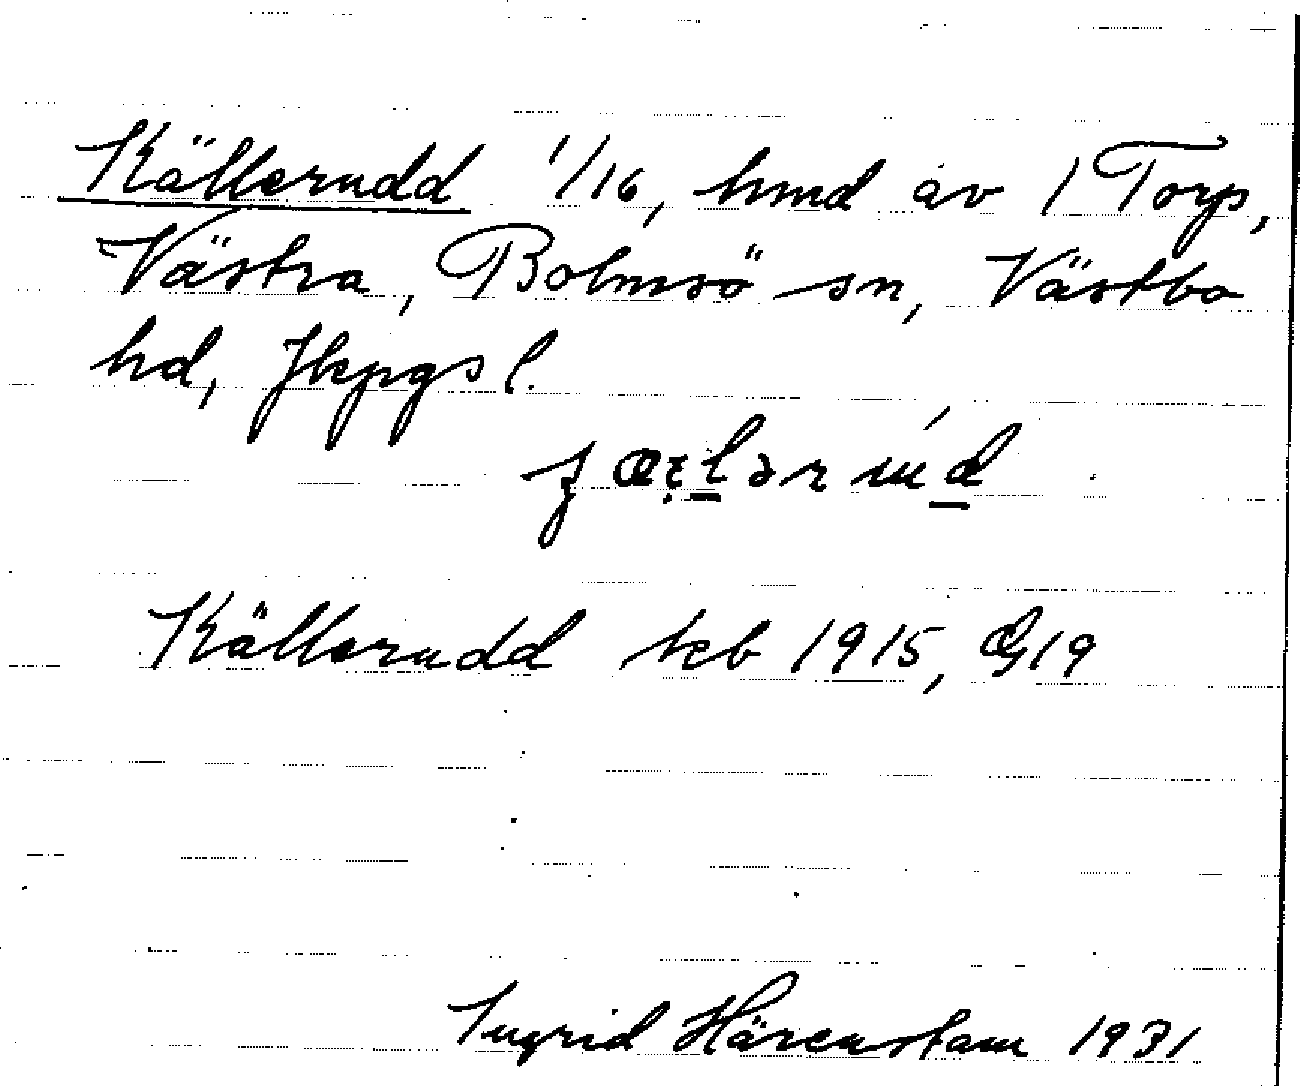 Källerudd 1/16, hmd av 1 Torp,
Västra, Bolmsö sn, Västbo
hd, Jkpgs l.
Källerudd teb 1915, G19
Ingrid Härenstam 1931